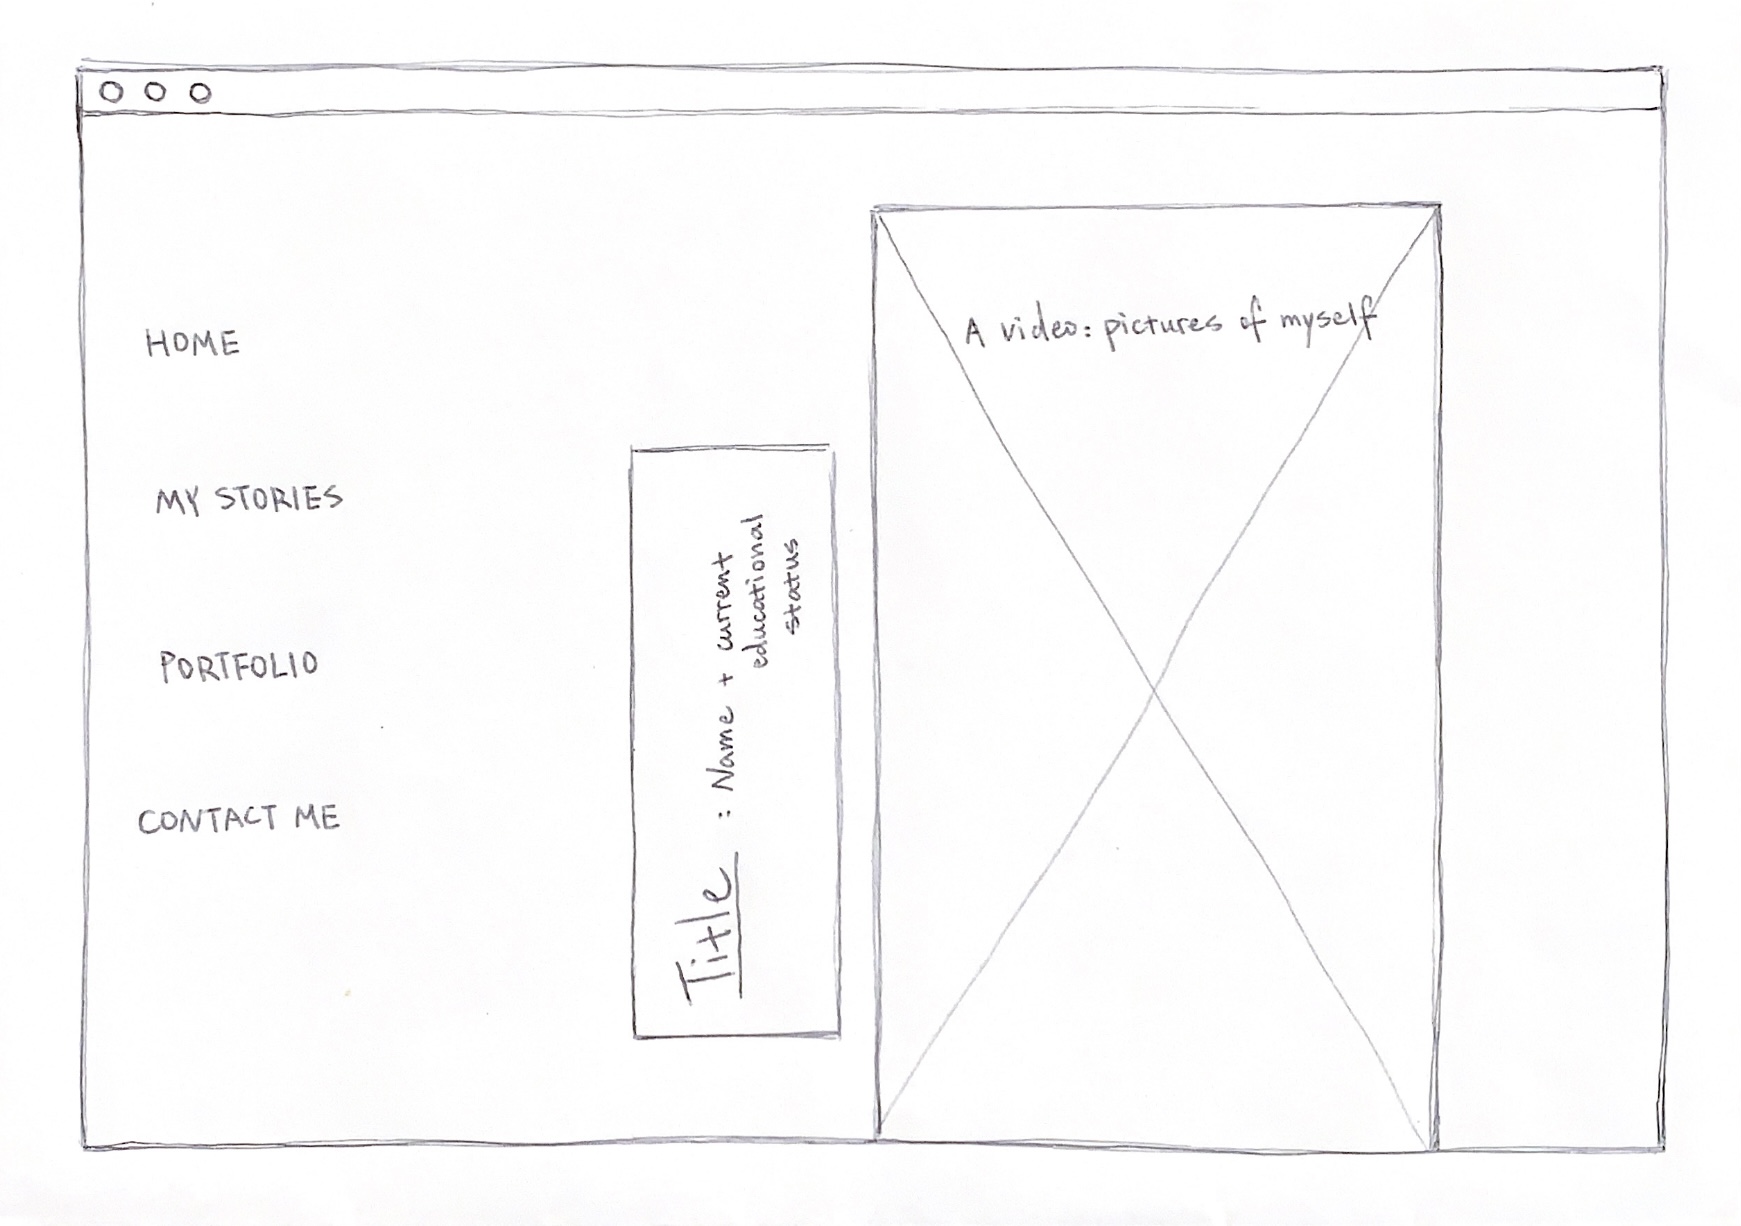 HOME
MY STORIES
PORTFOLIO
CONTACT ME
Title : Name + current
educational
status
A video: pictures of myself